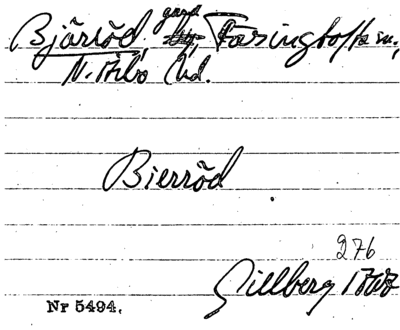 Bjäriöd, gård, Färingtofta sn,
N. Åsbo hd.
Bierröd
276
Gillberg
Nr 5494.